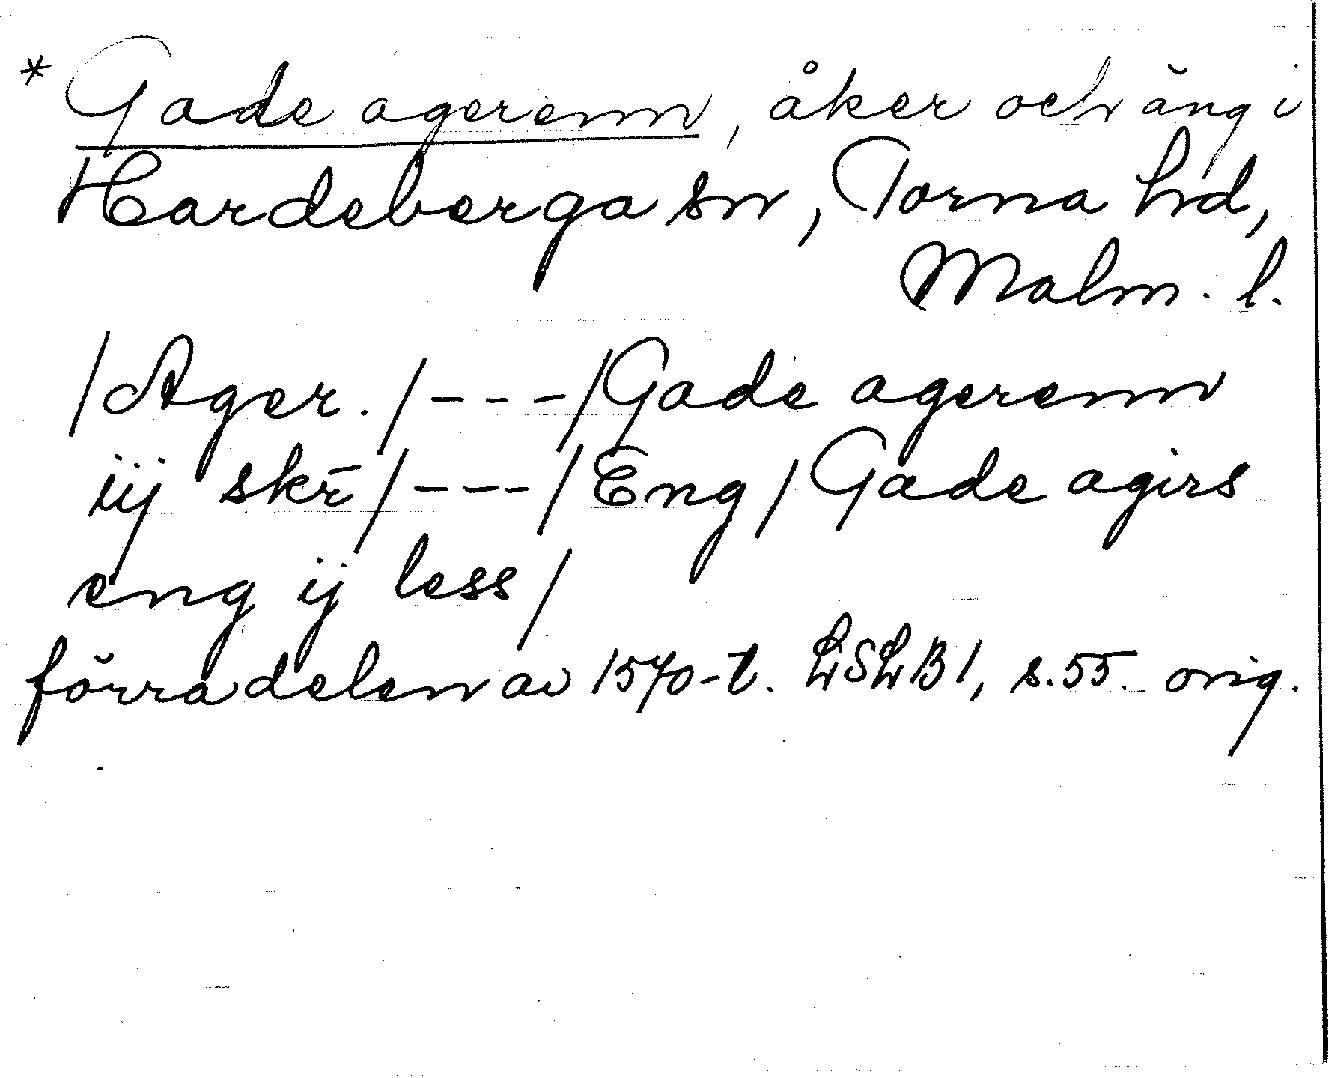 * Gade agerenn, åker och äng i
Hardeberga sn, Torna hd,
Malm. l.
/Ager./---/Gade agerenn
iij skr̄/---/Eng/Gade agirs
eng ij less/
förra delen av 1570-t. LSLB1, s.55. orig.